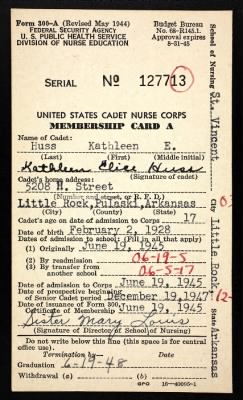 Form 300-A (Revised May 1944)
FEDERAL SECURITY AGENCY
U. S. PUBLIC HEALTH SERVICE
DIVISION OF NURSE EDUCATION
Budget Bureau
No. 68-R145.1.
Approval expires
8-31-45
SERIAL No 127713
UNITED STATES CADET NURSE CORPS
MEMBERSHIP CARD A
Name of Cadet:
Huss Kathleen E.
(Last) (First) (Middle initial)
Kathleen Elise Huss
Cadet's home address: (Signature of cadet)
5208 H. Street
(Number and street, or R. F. D.)
Little Rock, Pulaski, Arkansas
(City) (County) (State)
Cadet's age on date of admission to Corps 17
Date of birth February 2, 1928
Dates of admission to school: (Fill in all that apply)
(1) Originally June 19, 1945
(2) By readmission 06-19-5
(3) By transfer from
another school 06-5-17
Date of admission to Corps June 19, 1945
Date of prospective beginning
of Senior Cadet period December 19, 1947 12-
Date of issuance of Form 300,
Certificate of Membership June 19, 1945
Sister Mary Louis
(Signature of Director of School of Nursing)
Do not write below this line (this space is for central
office use).
Termination by Date
Graduation 6-19-48
Withdrawal (a) (b)
GPO 16-40095-1
School of Nursing St. Vincent
City Little Rock
State Arkansas